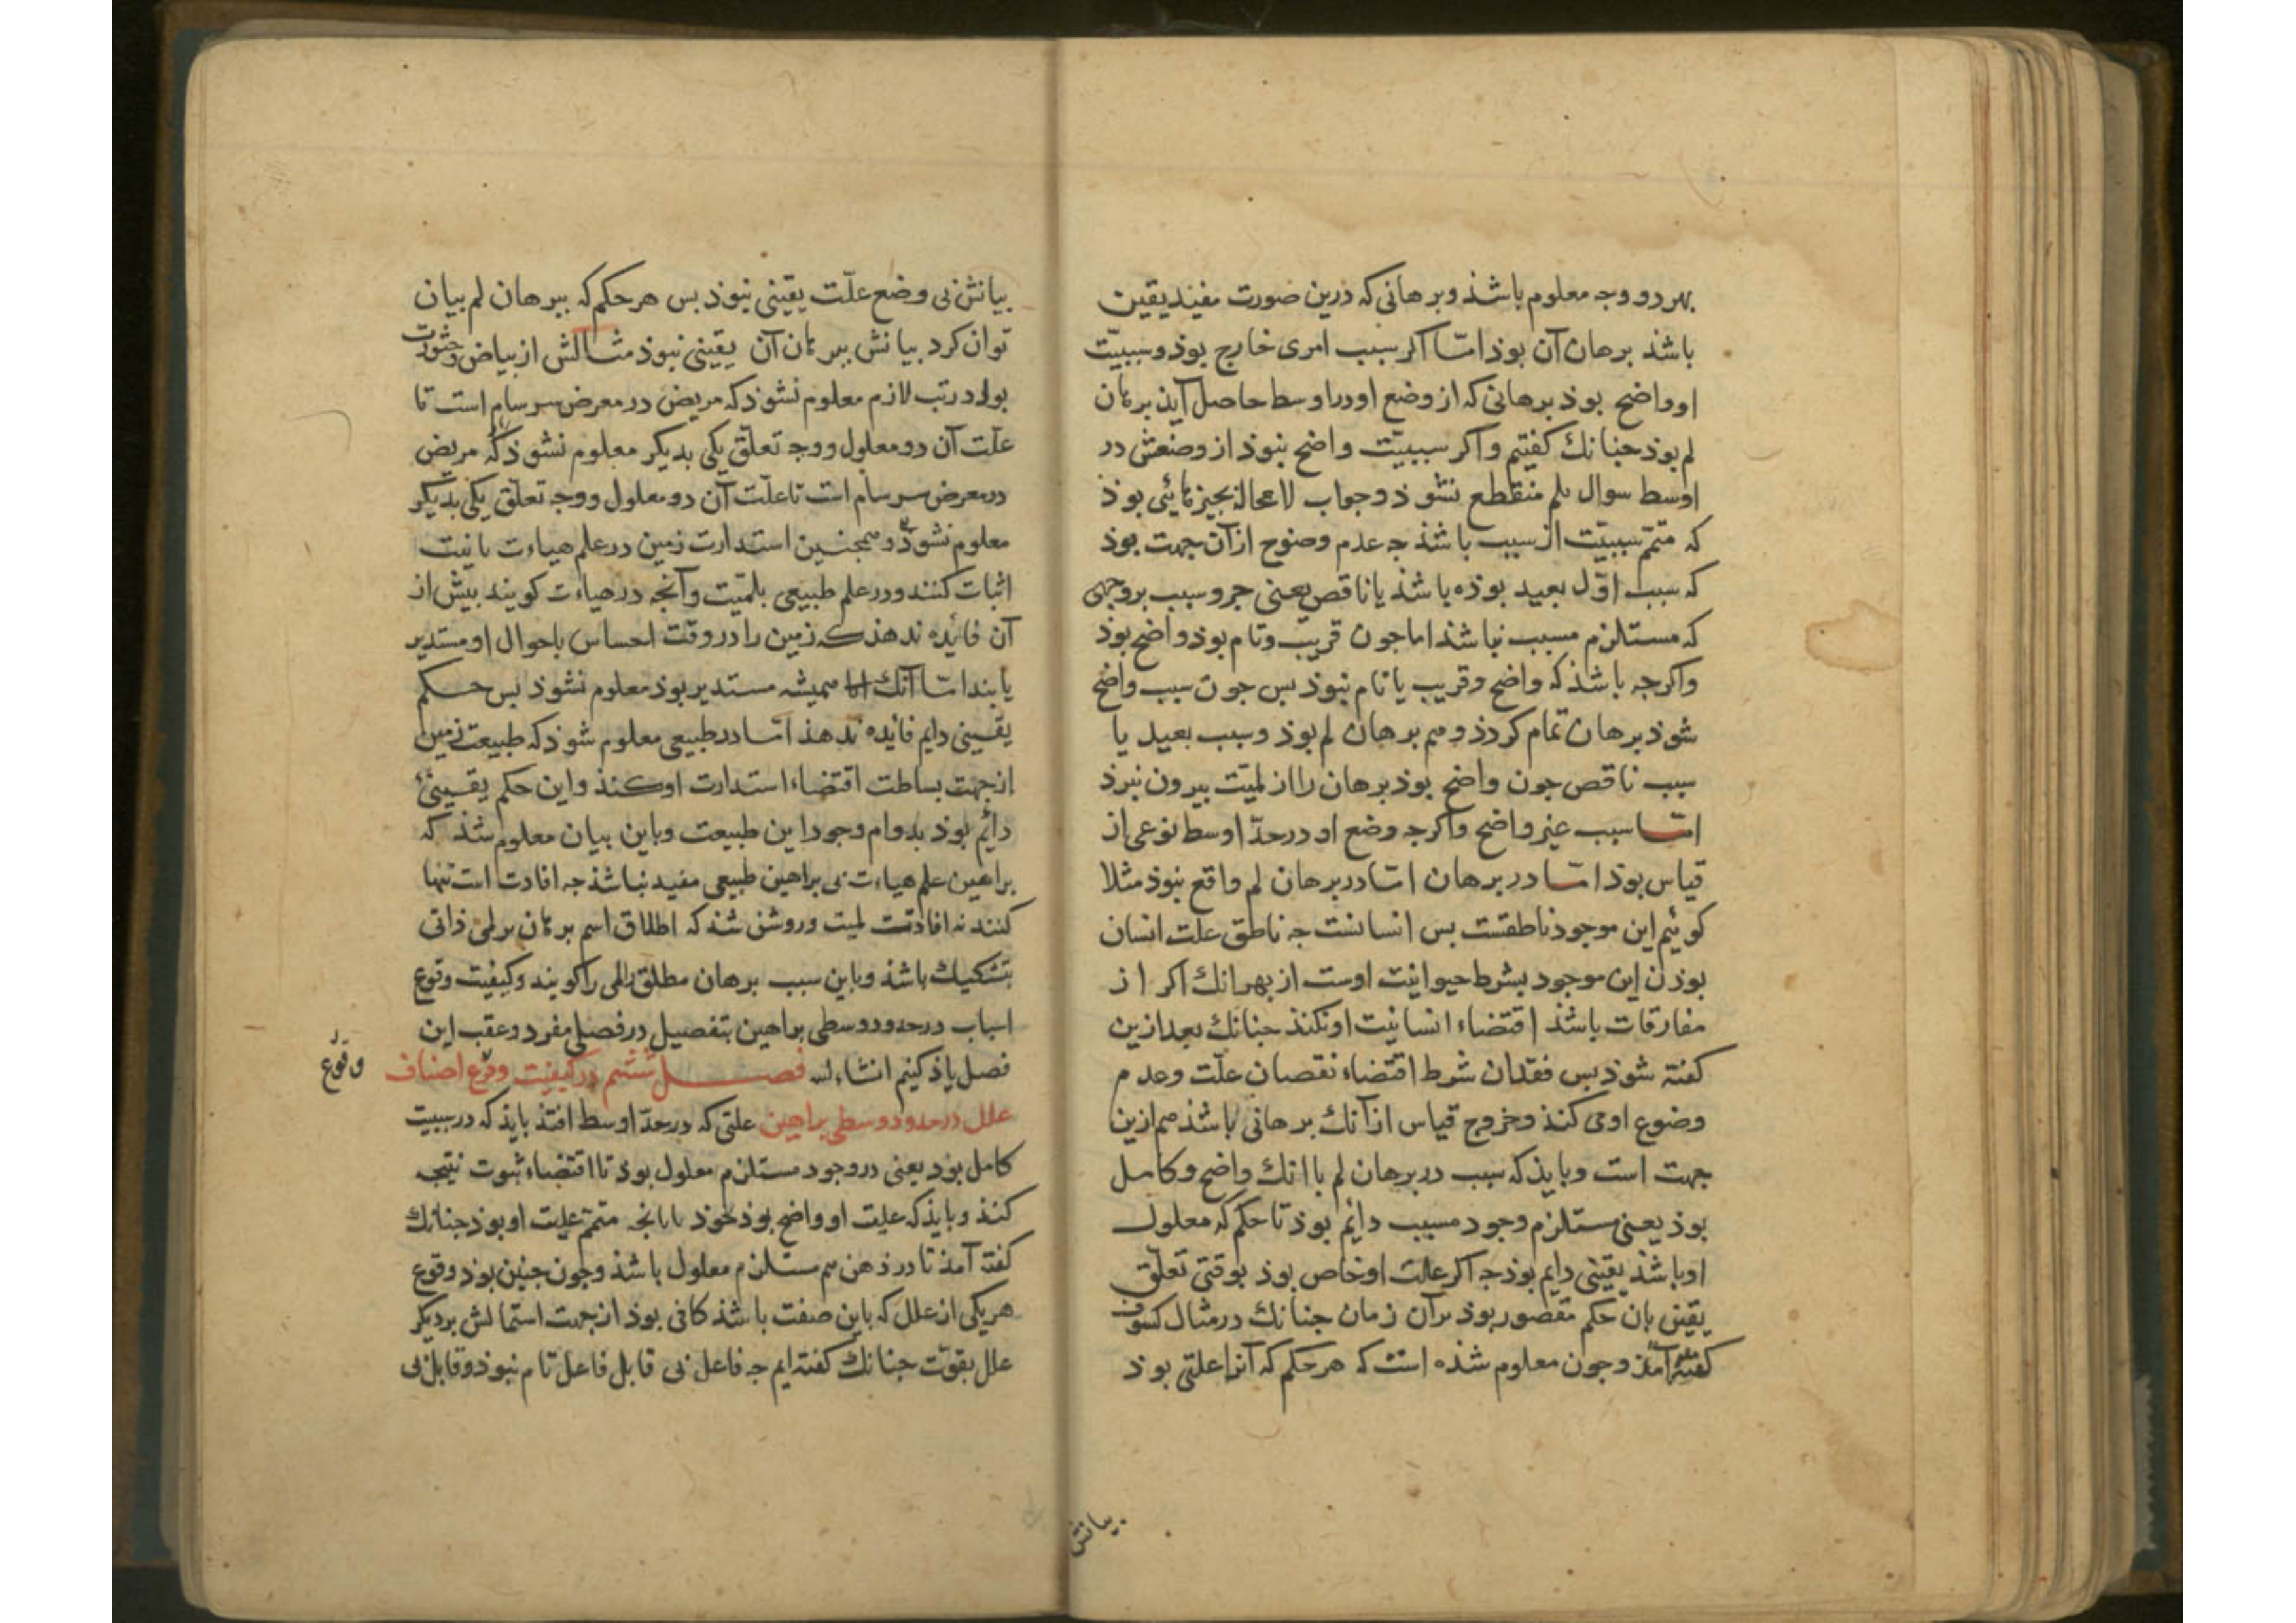 بهر دو وجه معلوم باشذ و برهانی که درین صورت مفید یقین
باشذ برهان آن بوذ امّا اکر سبب امری خارج بوذ و سببیّت
او واضح بوذ برهانی که از وضع او در اوسط حاصل آیذ برهان
لم بوذ جنانك کفتیم و اکر سببیّت واضح نبوذ از وضعش در
اوسط سوال بلم منقطع نشوذ و جواب لا محالة بجیزهائی بوذ
که متمّم سببیّت از سبب باشذ جه عدم وضوح از آن جهت بوذ
که سبب اوّل بعید بوذه باشذ یا ناقص یعنی جزو سبب بر وجهی
که مستلزم مسبب نباشذ اما جون قریب و تام بوذ واضح بوذ
و اکرجه باشذ که واضح و قریب یا تام نبوذ بس جون سبب واضح
شوذ برهان تمام کردذ و هم برهان لم بوذ و سبب بعید یا
سبب ناقص جون واضح بوذ برهان را از لمیّت بیرون نبرذ
امّا سبب غیر واضح و اکرجه وضع او در حدّ اوسط نوعی از
قیاس بوذ امّا در برهان امّا در برهان لم واقع نبوذ مثلا
کوئیم این موجود ناطقست بس انسانست جه ناطق علت انسان
بوذن این موجود بشرط حیوانیت اوست از بهر انك اکر از
مفارقات باشذ اقتضاء انسانیت او نکنذ جنانك بعد ازین
کفته شوذ بس فقدان شرط اقتضاء نقصان علّت و عدم
وضوع او می کنذ و خروج قیاس از آنك برهانی باشذ هم ازین
جهت است و بایذ که سبب در برهان لم با انك واضح و کامل
بوذ یعنی مستلزم وجود مسبب دایم بوذ تا حکم که معلول
او باشذ یقینی دایم بوذ جه اکر علت او خاص بوذ بوقتی تعلّق
یقین بان حکم مقصور بوذ بر آن زمان جنانك در مثال کسوف
کفته آمذ و جون معلوم شذه است که هر حکم که آنرا علتی بوذ
بیانش
بیانش بی وضع علّت یقینی نبوذ بس هر حکم که ببرهان لم بیان
توان کرد بیانش ببرهان آن یقینی نبوذ مثالش از بیاض و خثورت
بول در تب لازم معلوم نشوذ که مریض در معرض سرسام است تا
علّت آن دو معلول و وجه تعلّق یکی بدیکر معلوم نشوذ که مریض
در معرض سرسام است تا علّت آن دو معلول و وجه تعلّق یکی بدیکر
معلوم نشوذ و همجنین استدارت زمین در علم هیاءت بانیت
اثبات کنند و در علم طبیعی بلمیّت و آنجه در هیاءت کویند بیش از
آن فائده ندهذ که زمین را در وقت احساس باحوال او مستدیر
یابند امّا آنك همیشه مستدیر بوذ معلوم نشوذ بس حکم
یقینی دایم فائده ندهذ امّا در طبیعی معلوم شوذ که طبیعت زمین
از جهت بساطت اقتضاء استدارت او کنذ و این حکم یقینی
دائم بوذ بدوام وجود این طبیعت و باین بیان معلوم شذ که
براهین علم هیاءت بی براهین طبیعی مفید نباشذ جه افادت انیت تنها
کنند نه افادت لمیت و روشن شذ که اطلاق اسم برهان بر لمی ذاتی
بتشکیك باشذ و باین سبب برهان مطلق لمی را کویند و کیفیت وقوع
اسباب در حدود وسطی براهین بتفصیل در فصلی مفرد و عقب این
فصل یاذ کنیم انشاء الله فصل ششم در کیفیت وقوع اصناف
وقوع
علل در حدود وسطی براهین علتی که در حدّ اوسط افتذ بایذ که در سببیت
کامل بوذ یعنی در وجود مستلزم معلول بوذ تا اقتضاء ثبوت نتیجه
کنذ و بایذ که علیت او واضح بوذ بخوذ یا بانجه متمّم علیت او بوذ جنانك
کفته آمذ تا در ذهن هم مستلزم معلول باشذ و جون جنین بوذ وقوع
هر یکی از علل که باین صفت باشذ کافی بوذ از جهت اشتمالش بر دیکر
علل بقوّت جنانك کفته ایم جه فاعل بی قابل فاعل تام نبوذ و قابل بی